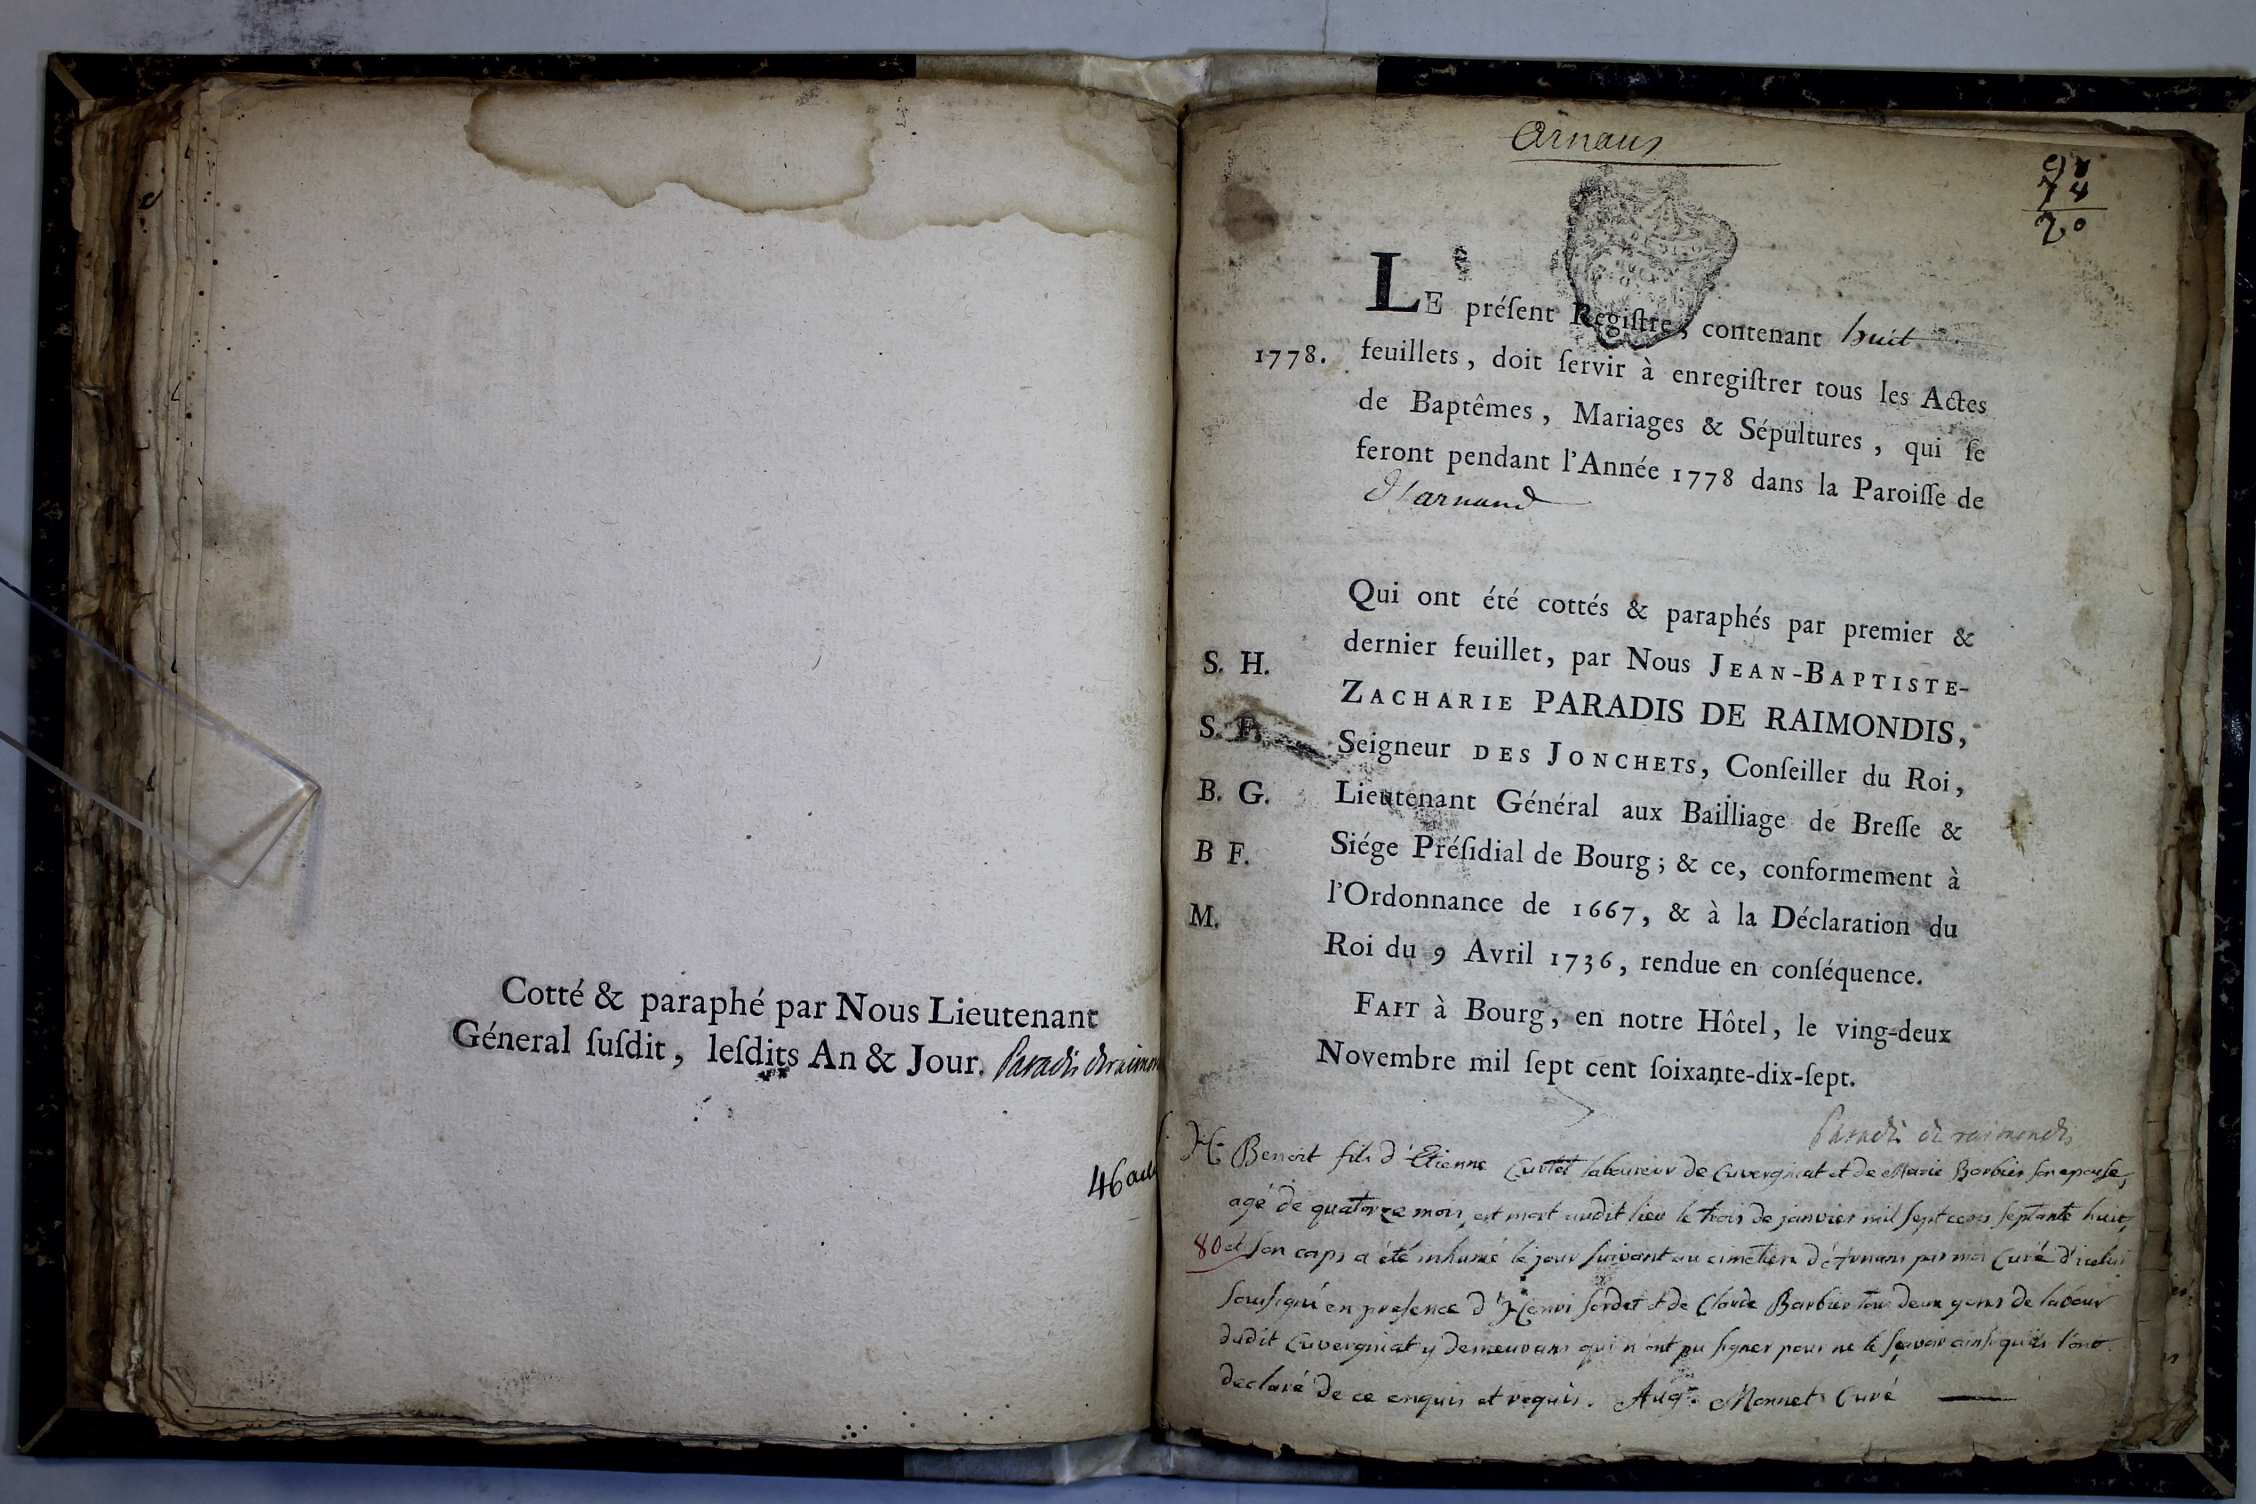 Cotté & paraphé par Nous Lieutenant
Géneral ſuſdit, leſdits An & Jour. Paradis deraimon
46
Arnans
74
20
LE préſent Regiſtre, contenant huit
1778. feuillets, doit ſervir à enregiſtrer tous les Actes
de Baptêmes, Mariages & Sépultures, qui ſe
feront pendant l'Année 1778 dans la Paroiſſe de
d'arnand
Qui ont été cottés & paraphés par premier &
dernier feuillet, par Nous JEAN-BAPTISTE-
S. H. ZACHARIE PARADIS DE RAIMONDIS,
S. F. Seigneur DES JONCHETS, Conſeiller du Roi,
B. G. Lieutenant Général aux Bailliage de Breſſe &
B F. Siége Préſidial de Bourg; & ce, conformement à
l'Ordonnance de 1667, & à la Déclaration du
M. Roi du 9 Avril 1736, rendue en conſéquence.
FAIT à Bourg, en notre Hôtel, le ving-deux
Novembre mil ſept cent ſoixante-dix-ſept.
Paradis de raimondis
Benoit fils d'Etienne Curtet laboureur de Cuvergniat et de Marie Barbier son epouse,
agé de quatorze mois est mort audit lieu le trois de janvier mil sept cens septante huit,
80 et son corps a été inhumé le jour suivant au cimetiere d'Arnans par moi Curé d'icelui
soussigné en presence d'Henri sordet et de Claude Barbier tous deux gens de labour
dudit Cuvergniat y demeurans qui n'ont pu signer pour ne le sçavoir ainsi qu'ils l'ont
declaré de ce enquis et requis. Augn. Monnet Curé